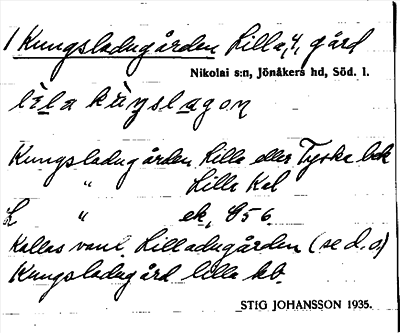 1 Kungsladugården Lilla, 4, gård
Nikolai s:n, Jönåkers hd, Söd. l.
lìla kùŋslagon
Kungsladugården Lilla eller Tyska bek
" Lilla Kal
L " ek, 956
Kallas vanl. Lilladugården (se d. o)
Kungsladugård lilla kb.
STIG JOHANSSON 1935.